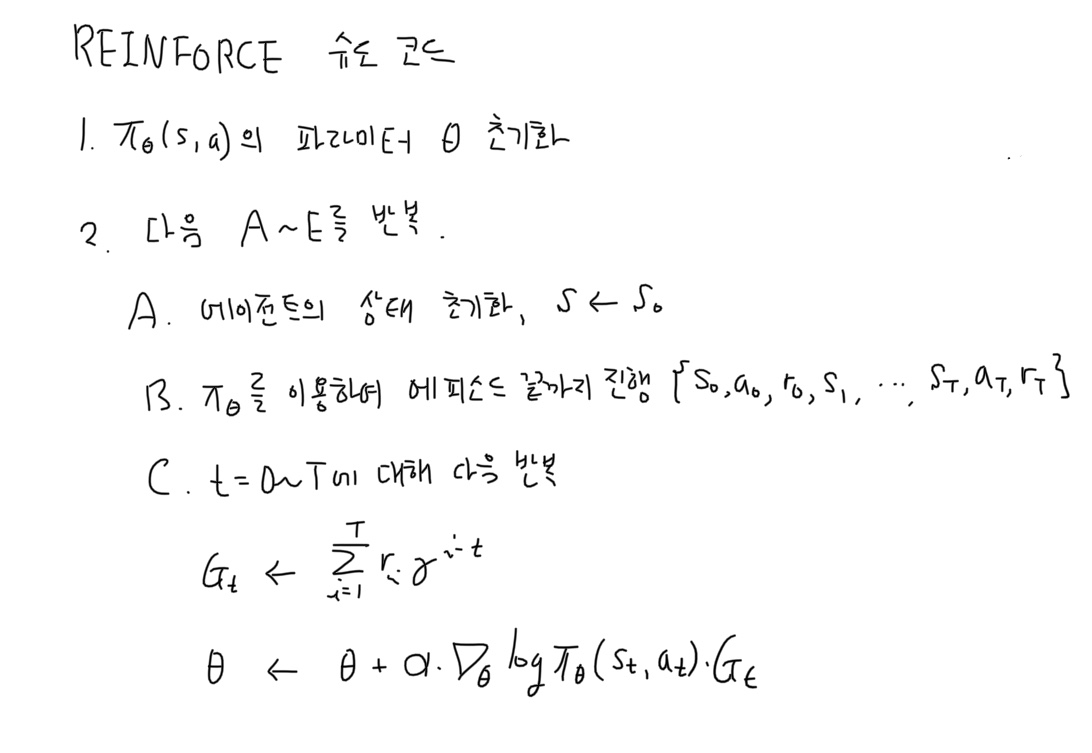 REINFORCE 슈도 코드
1. π_θ(s, a)의 파라미터 θ 초기화
2. 다음 A~E를 반복.
A. 에이전트의 상태 초기화, s ← s₀
B. π_θ를 이용하여 에피소드 끝까지 진행 {s₀, a₀, r₀, s₁, ..., s_T, a_T, r_T}
C. t = 0~T에 대해 다음 반복
G_t ← Σ_{i=1}^{T} r_i γ^{i-t}
θ ← θ + α·∇_θ log π_θ(s_t, a_t)·G_t